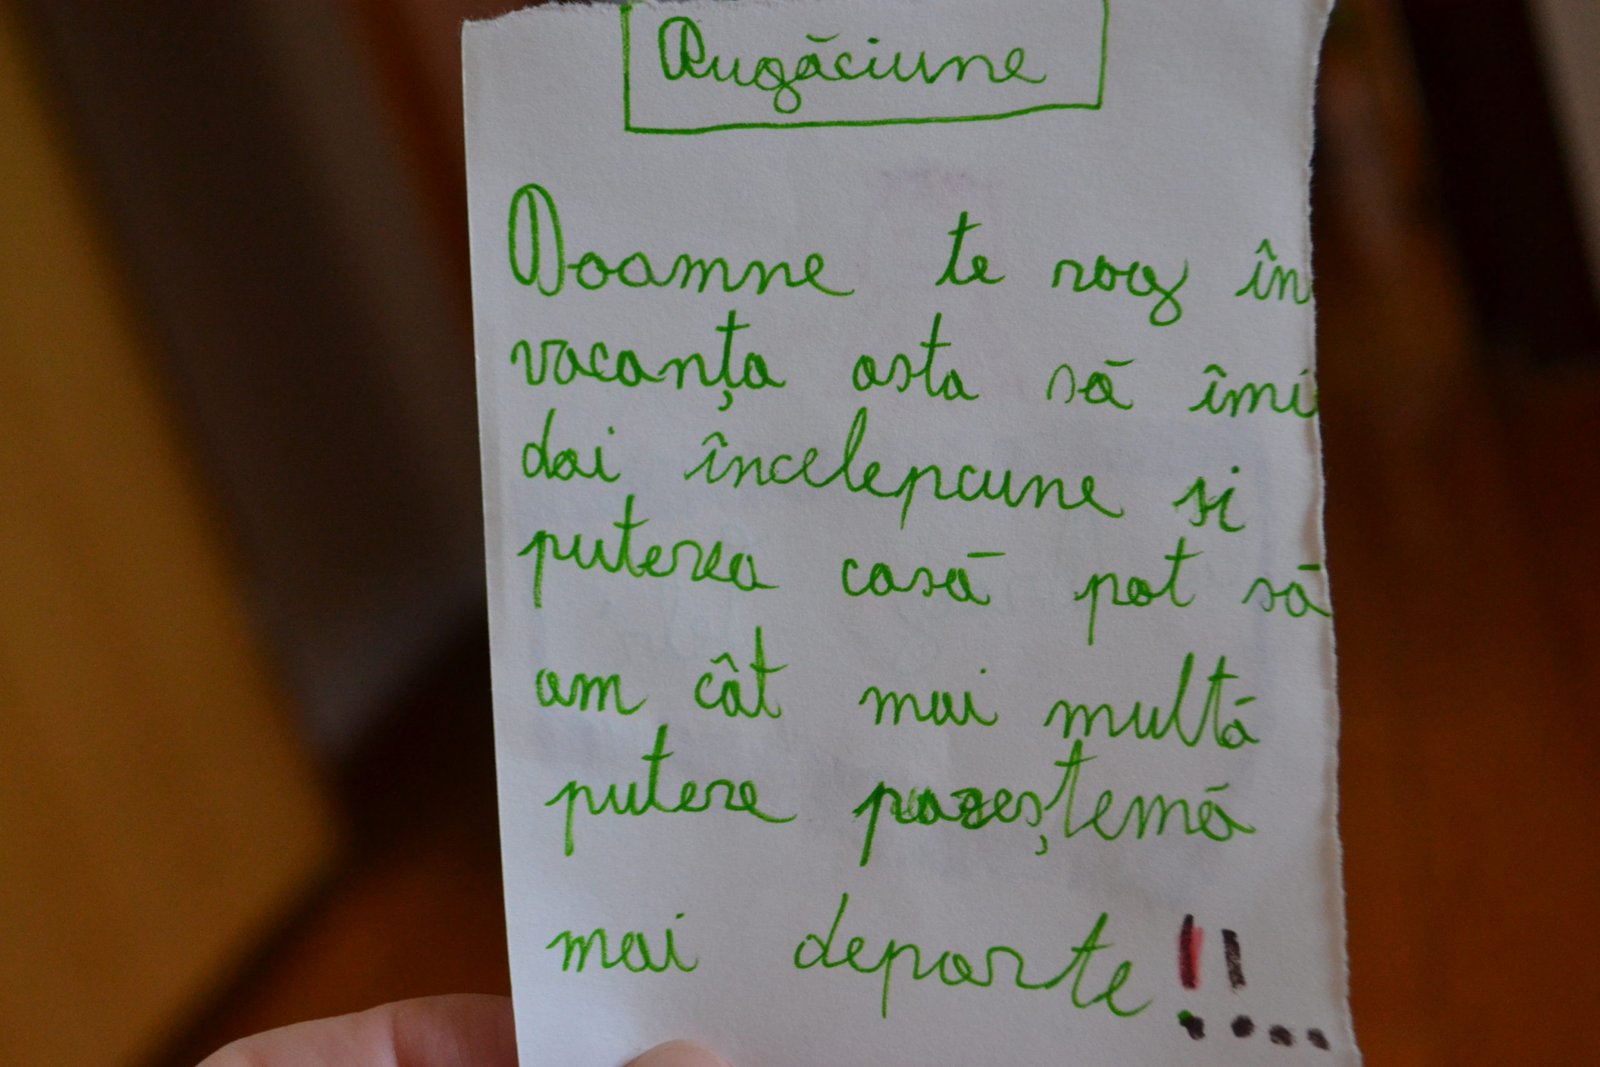 Rugăciune
Doamne te rog în
vacanța asta să îmi
dai încelepcune si
puterea casă pot să
am cât mai multă
putere pazeștemă
mai departe!!..